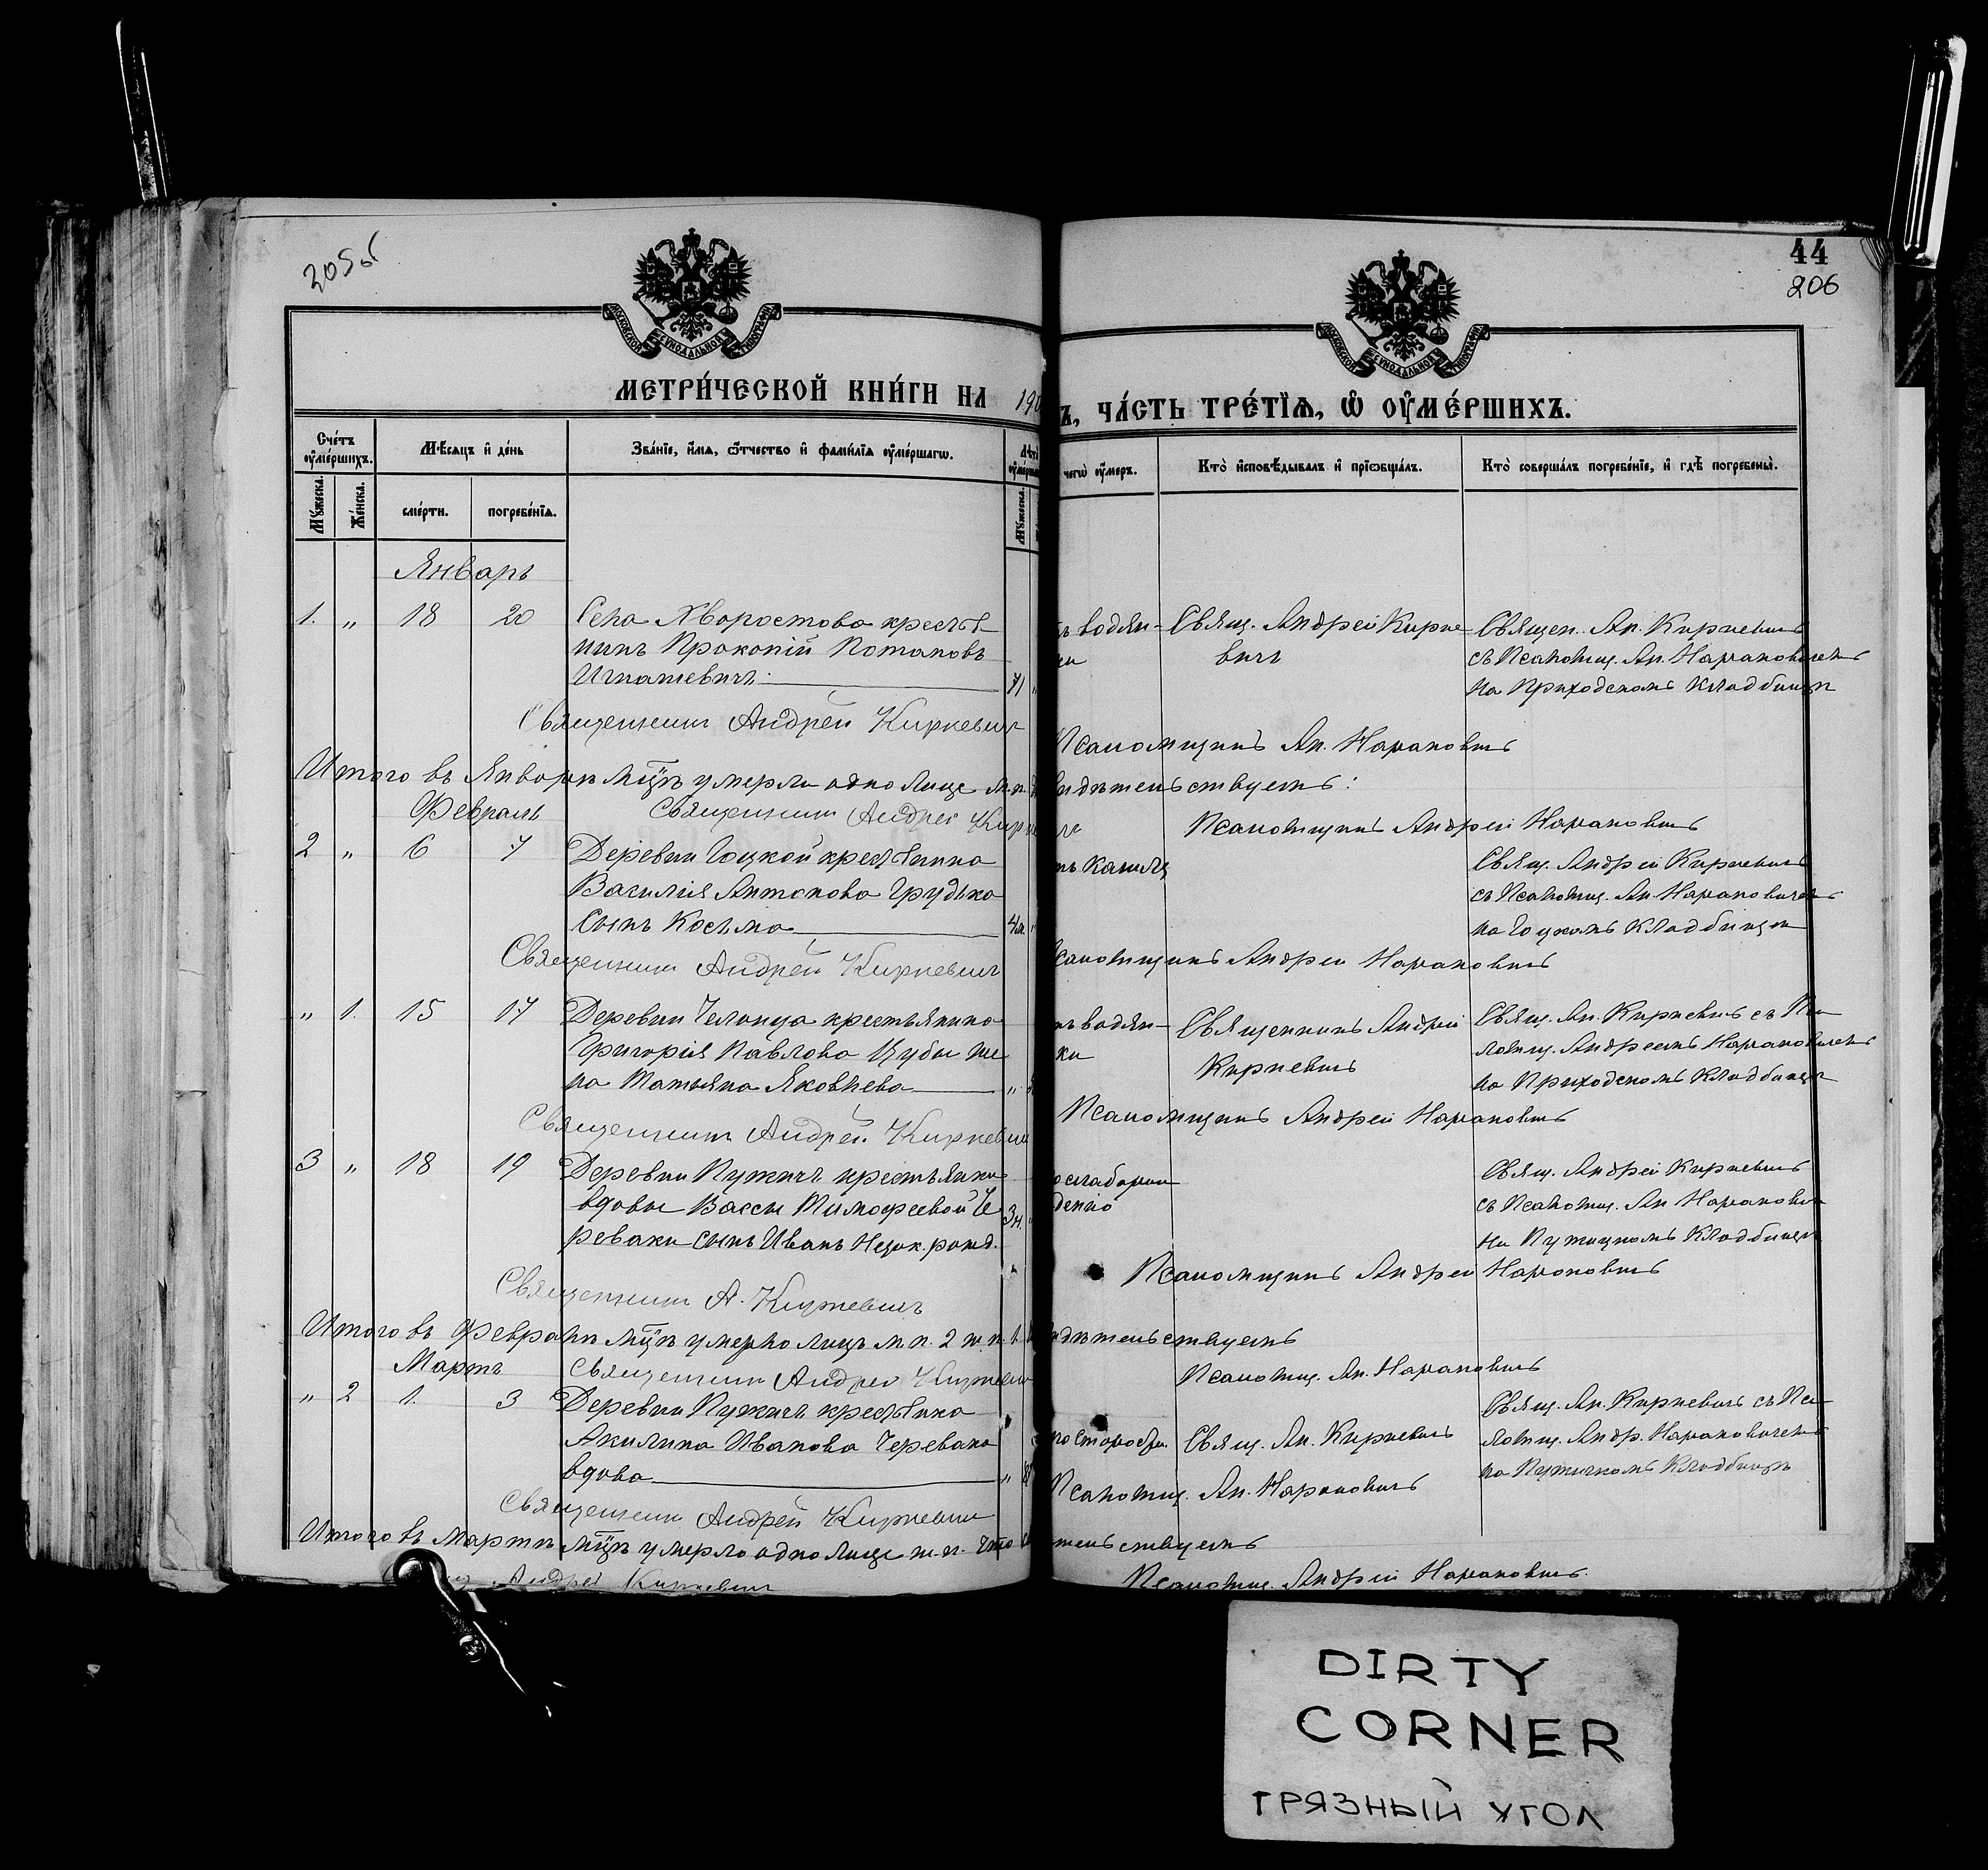 205 об
44
206
МОСКОВСКОЙ СѴНОДАЛЬНОЙ ТИПОГРАФІИ
МОСКОВСКОЙ СѴНОДАЛЬНОЙ ТИПОГРАФІИ
МЕТРИ́ЧЕСКОЙ КНИ́ГИ НА 190
Ъ, ЧА́СТЬ ТРЕ́ТЇѦ, Ѡ҆ ОУ҆МЕ́РШИХЪ.
Сче́тъ оу҆ме́ршихъ.
Мѣ́сѧцъ и҆ де́нь
Зва́нїе, и҆́мѧ, ѻ҆́тчество и҆ фами́лїѧ оу҆ме́ршагѡ.
Лѣ́т
оу҆ме́рша
чегѡ̀ оу҆́меръ.
Кто̀ и҆сповѣ́дывалъ и҆ прїѡбща́лъ.
Кто̀ соверша́лъ погребе́нїе, и҆ гдѣ̀ погребены̀.
Мꙋ́жеска.
Же́нска.
сме́рти.
погребе́нїѧ.
Мꙋ́жеска.
Январь
1. „ 18 20 Села Хворостова крестья-
нинъ Прокопій Потаповъ
Игнатевичъ 71 „
ъ водян-
ки
Свящ. Андрей Кирке-
вичъ
Священ. Ан. Киркевичъ
съ Псаломщ. Ан. Нарановичемъ
на Приходскомъ кладбищѣ
Священникъ Андрей Киркевич
Псаломщикъ Ан. Нарановичъ
Итого въ Январѣ мц̃ѣ умерли одно лице м.п.
идѣтельствуемъ:
Февраль
Священникъ Андрей Кирке
Псаломщикъ Андрей Нарановичъ
2 „ 6 7 Деревни Гоцкой крестьянина
Василія Антонова Грудька
сынъ Косьма 4м. „
ъ кашля
Свящ. Андрей Киркевичъ
съ Псаломщ. Ан. Нарановичемъ
на Гоцкомъ кладбищѣ
Священникъ Андрей Киркевичъ
саломщикъ Андрей Нарановичъ
„ 1. 15 17 Деревни Челонца крестьянина
Григорія Павлова Цубы же
на Татьяна Яковлева „
ъ водян-
ки
Священникъ Андрей
Киркевичъ
Свящ. Ан. Киркевичъ съ Пса
ломщ. Андреемъ Нарановичемъ
на Приходскомъ кладбищѣ
Священникъ Андрей Киркевич
Псаломщикъ Андрей Нарановичъ
3 „ 18 19 Деревни Пужичъ крестьянки
вдовы Вассы Тимофеевой Че
реваки сынъ Иванъ Незак. рожд. 3н.
Свящ. Андрей Киркевичъ
съ Псаломщ. Ан Нарановичемъ
на Пужицкомъ кладбищѣ
Священникъ А. Киркевичъ
Псаломщикъ Андрей Нарановичъ
Итого въ Февралѣ мц̃ѣ умерло лицъ м.п. 2 ж.п. 1.
идѣтельствуемъ
Мартъ
Священникъ Андрей Киркевич
Псаломщ. Ан. Нарановичъ
„ 2 1. 3 Деревни Пужичъ крестьянка
Акилина Иванова Черевака
вдова „
Свящ. Ан. Киркевичъ
Свящ. Ан. Киркевичъ съ Пса
ломщ. Андр. Нарановичемъ
на Пужичкомъ кладбищѣ
Священникъ Андрей Киркевичъ
Псаломщ. Ан. Нарановичъ
Итого въ Мартѣ мц̃ѣ умерло одно лице ж.п. Что
тельствуемъ
Андрей Киркевичъ
Псаломщ. Андрей Нарановичъ.
DIRTY
CORNER
ГРЯЗНЫЙ УГОЛ